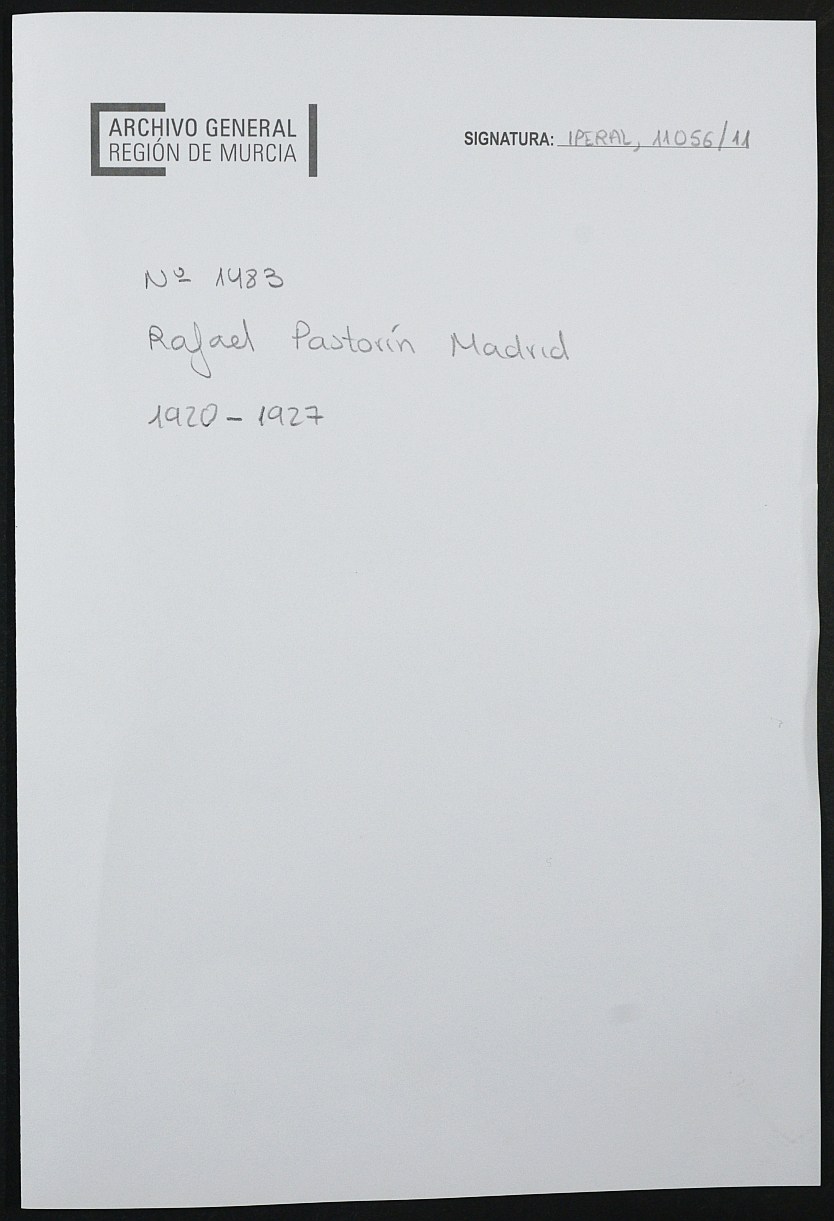 ARCHIVO GENERAL
REGIÓN DE MURCIA
SIGNATURA: IPERAL, 11056/11
Nº 1483
Rafael Pastorín Madrid
1920 - 1927